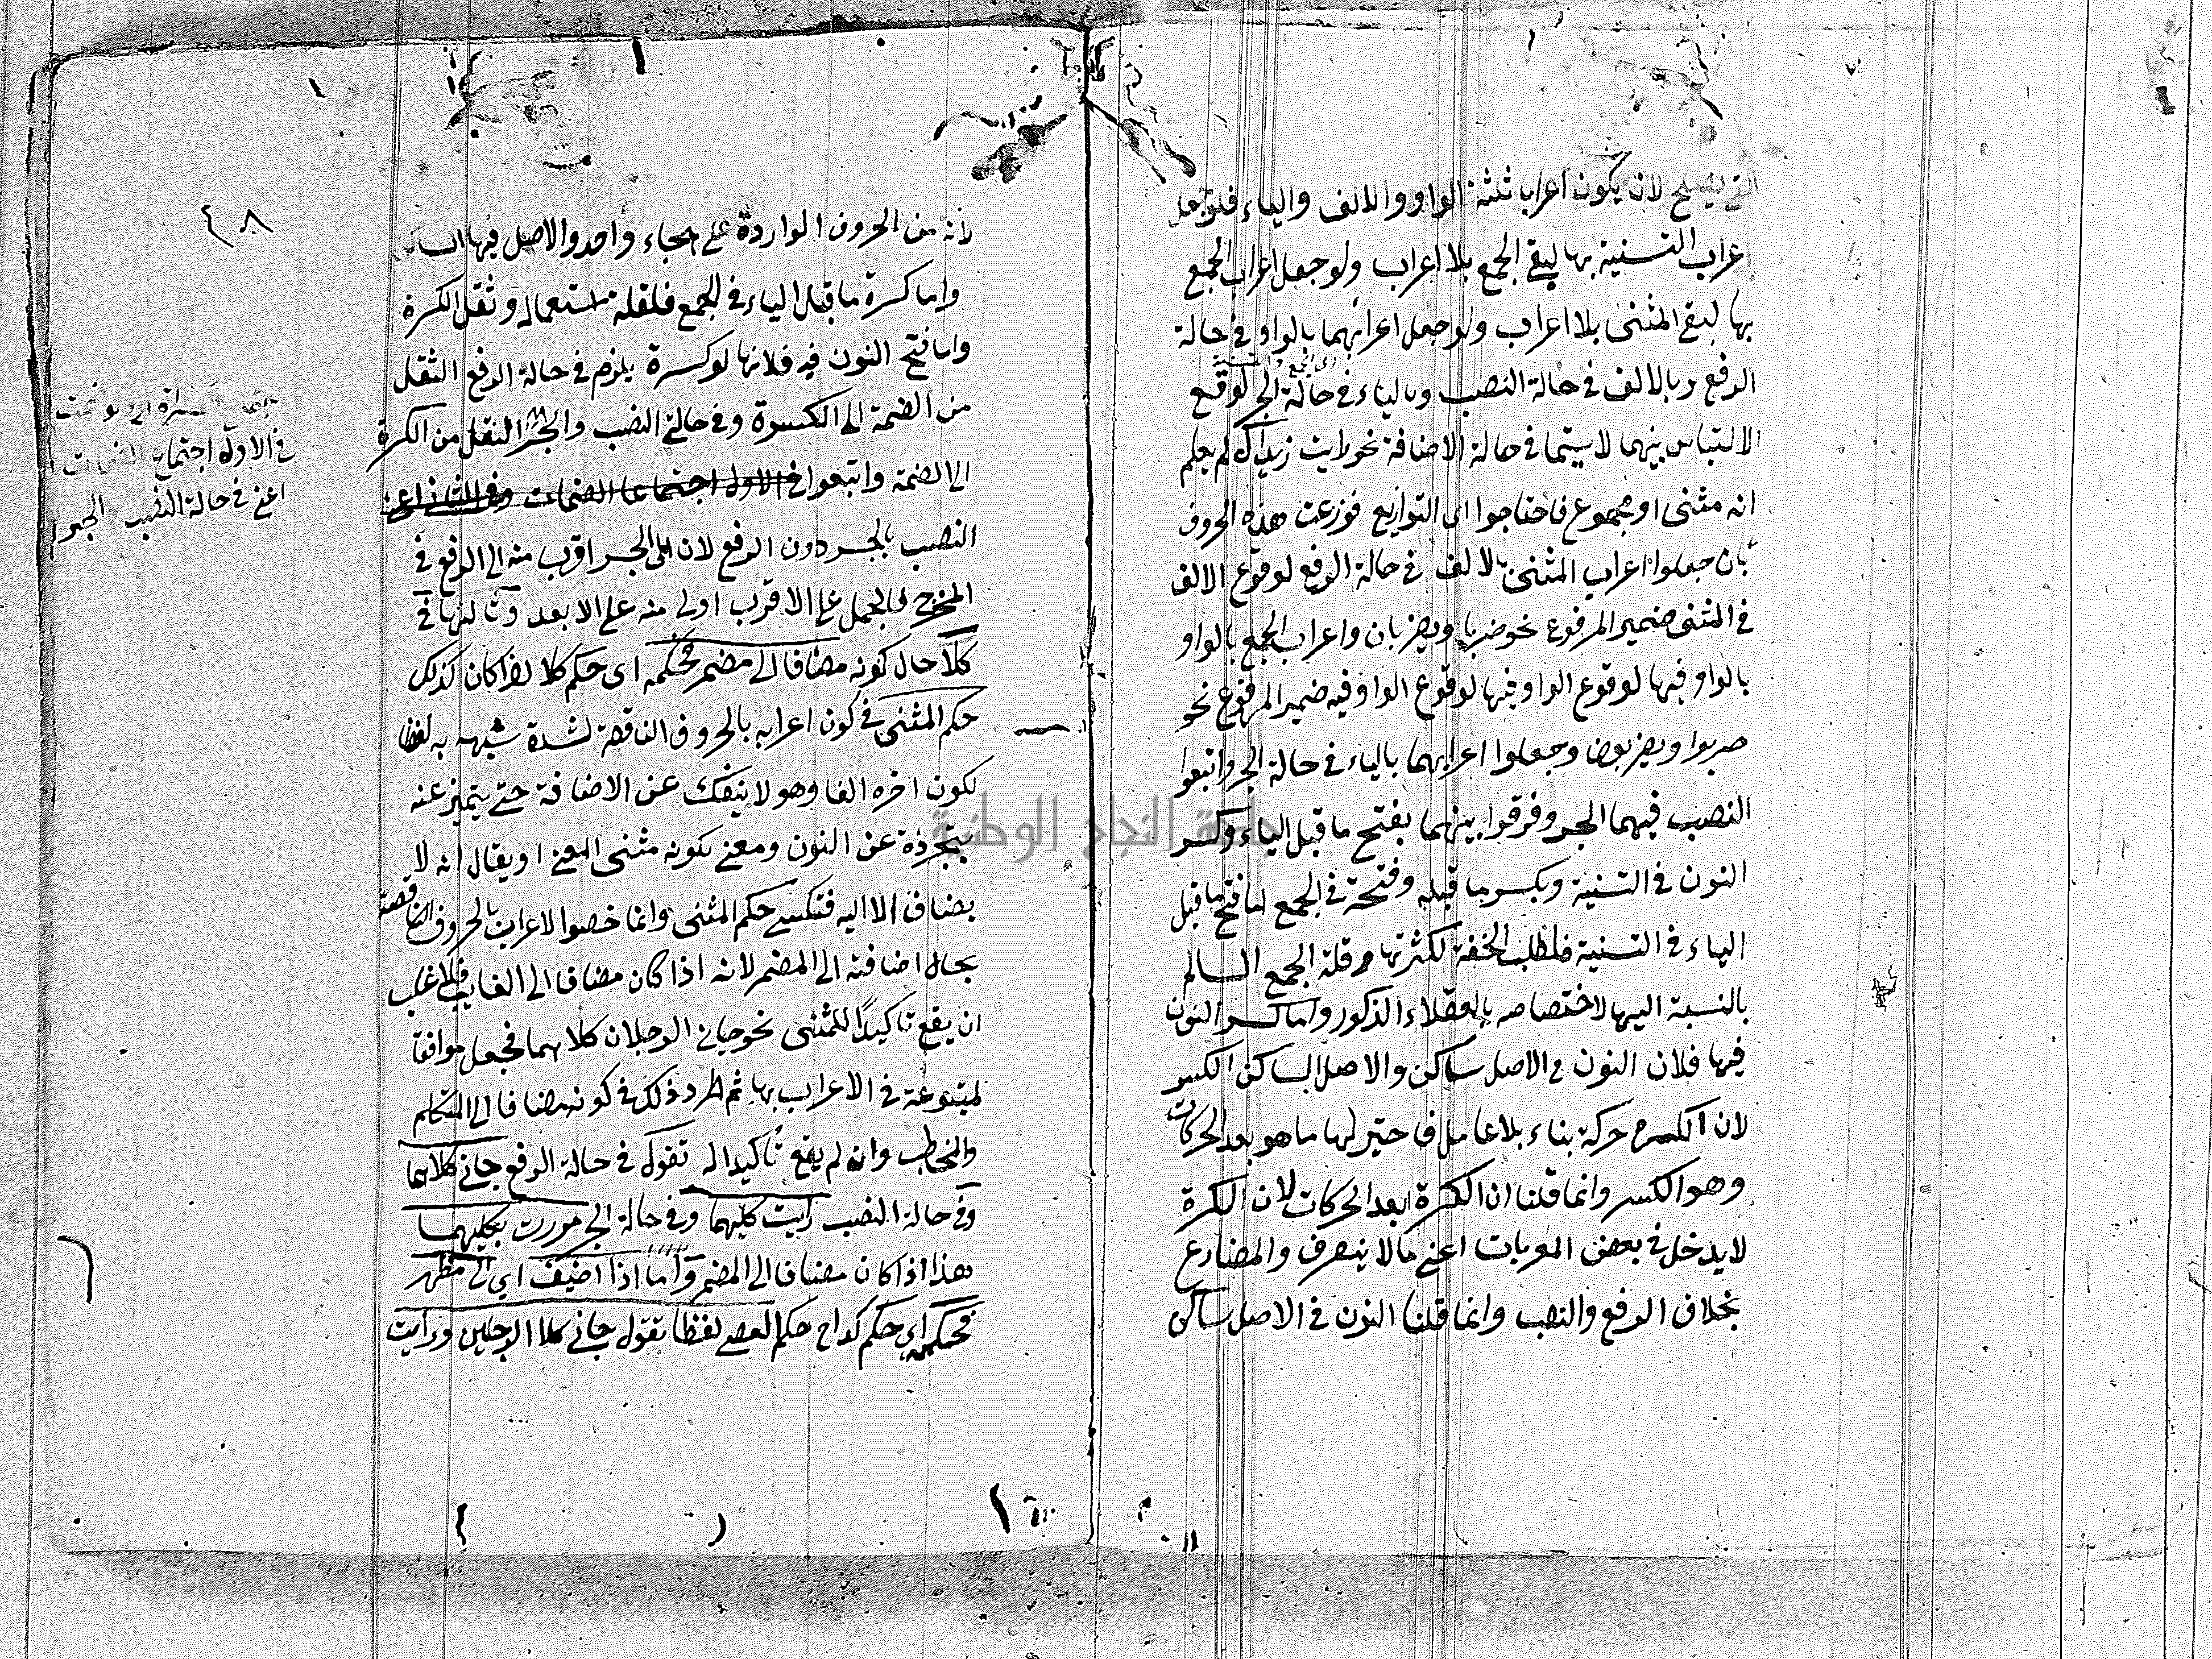 التي يصلح لان يكون اعرابا ثلثة الواو والالف والياء فلو جعل
اعراب التسنية بها لبقي الجمع بلا اعراب ولو جعل اعراب الجمع
بها لبقي المثنى بلا اعراب ولو جعل اعرابهما بالواو في حالة
الرفع وبالالف في حالة النصب وبالياء في حالة الجر لوقع
الالتباس بينهما لا سيتما في حالة الاضافة نحو رايت زيداك لم يعلم
انه مثنى او مجموع فاحتاجوا الى التوازيع فوزعت هذه الحروف
بان جعلوا اعراب المثنى بالالف في حالة الرفع لوقوع الالف
في المثنى ضمير المرفوع نحو ضربا ويضربان واعراب الجمع بالواو
بالواو فيها لوقوع الواو فيها لوقوع الواو فيه ضمير المرفوع نحو
ضربوا ويضربون وجعلوا اعرابهما بالياء في حالة الجر واتبعوا
النصب فيهما الجر وفرقوا بينهما بفتح ما قبل الياء وكسر
النون في التسنية وبكسر ما قبله وفتحة في الجمع اما فتح ما قبل
الياء في التسنية فلطلب الخفة لكثرتها وقلة الجمع السالم
بالنسبة اليها لاختصاصه بالعقلاء الذكور واما كسر النون
فيها فلان النون في الاصل ساكن والاصل الساكن الكسر
لان الكسرة حركة بناء بلا عامل فاختير لها ما هو بعد الحركات
وهو الكسر وانما قلنا ان الكسرة ابعد الحركات لان الكسرة
لا يدخل في بعض المعربات اعني ما لا ينصرف والمضارع
بخلاف الرفع والنصب وانما قلنا النون في الاصل ساكن
٤٨
لانه من الحروف الواردة على هجاء واحد والاصل فيها
واما كسرة ما قبل الياء في الجمع فلقلة استعماله وثقل الكسرة
واما فتح النون فيه فلانها لو كسرة يلزم في حالة الرفع الثقل
من الضمة الى الكسرة وفي حالتي النصب والجر النقل من الكسرة
الى الضمة واتبعوا في الاول اجتماعا الضمات وفي الثاني اعني
النصب بالجر دون الرفع لان الى الجر اقرب منه الى الرفع في
المخرج والحمل على الاقرب اولى منه على الابعد وثالثها في
كلا حال كونه مضافا الى مضمر فحكمه اى حكم كلا اذا كان كذلك
حكم المثنى في كون اعرابه بالحروف الناقصة لشدة شبهه به لفظا
لكون اخره الفا وهو لا ينفك عن الاضافة حتى يتميز عنه
بتجرده عن النون ومعنى لكونه مثنى المعنى او يقال انه لا
يضاف الا اليه فتكسي حكم المثنى وانما خصوا الاعراب بالحروف الناقصة
بحال اضافته الى المضمر لانه اذا كان مضافا الى الغايب فالاغلب
ان يقع تاكيدًا للمثنى نحو جاني الرجلان كلاهما فجعل موافقا
لمتبوعة في الاعراب بها ثم اطرد ذلك في كونه مضافا الى المتكلم
والمخاطب وان لم يقع تاكيدا له تقول في حالة الرفع جاني كلاهما
وفي حالة النصب رايت كليهما وفي حالة الجر مررت بكليهما
هذا اذا كان مضافا الى المضمر واما اذا اضيف اي الى مظهر
فحكمه اى حكم كلا ح حكم العصى لفظا تقول جاني كلا الرجلين ورايت
في الاول اجتماع الضمات
اعني في حالة النصب والجر
جامعة النجاح الوطنية